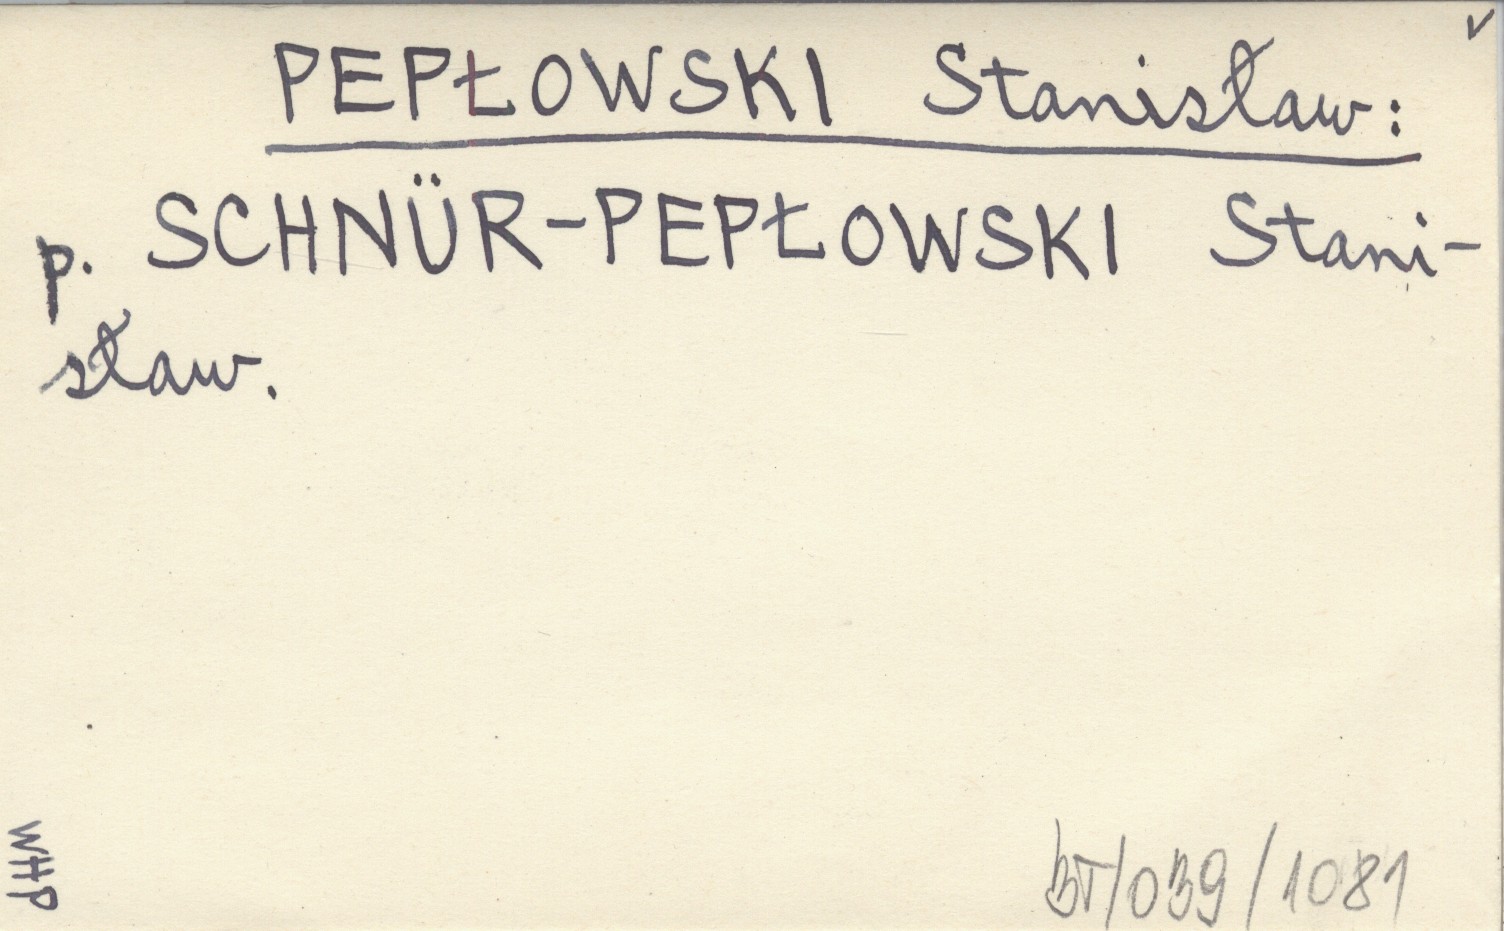 PEPŁOWSKI Stanisław:
p. SCHNÜR-PEPŁOWSKI Stani-
sław.
WHP
BT/039/1081